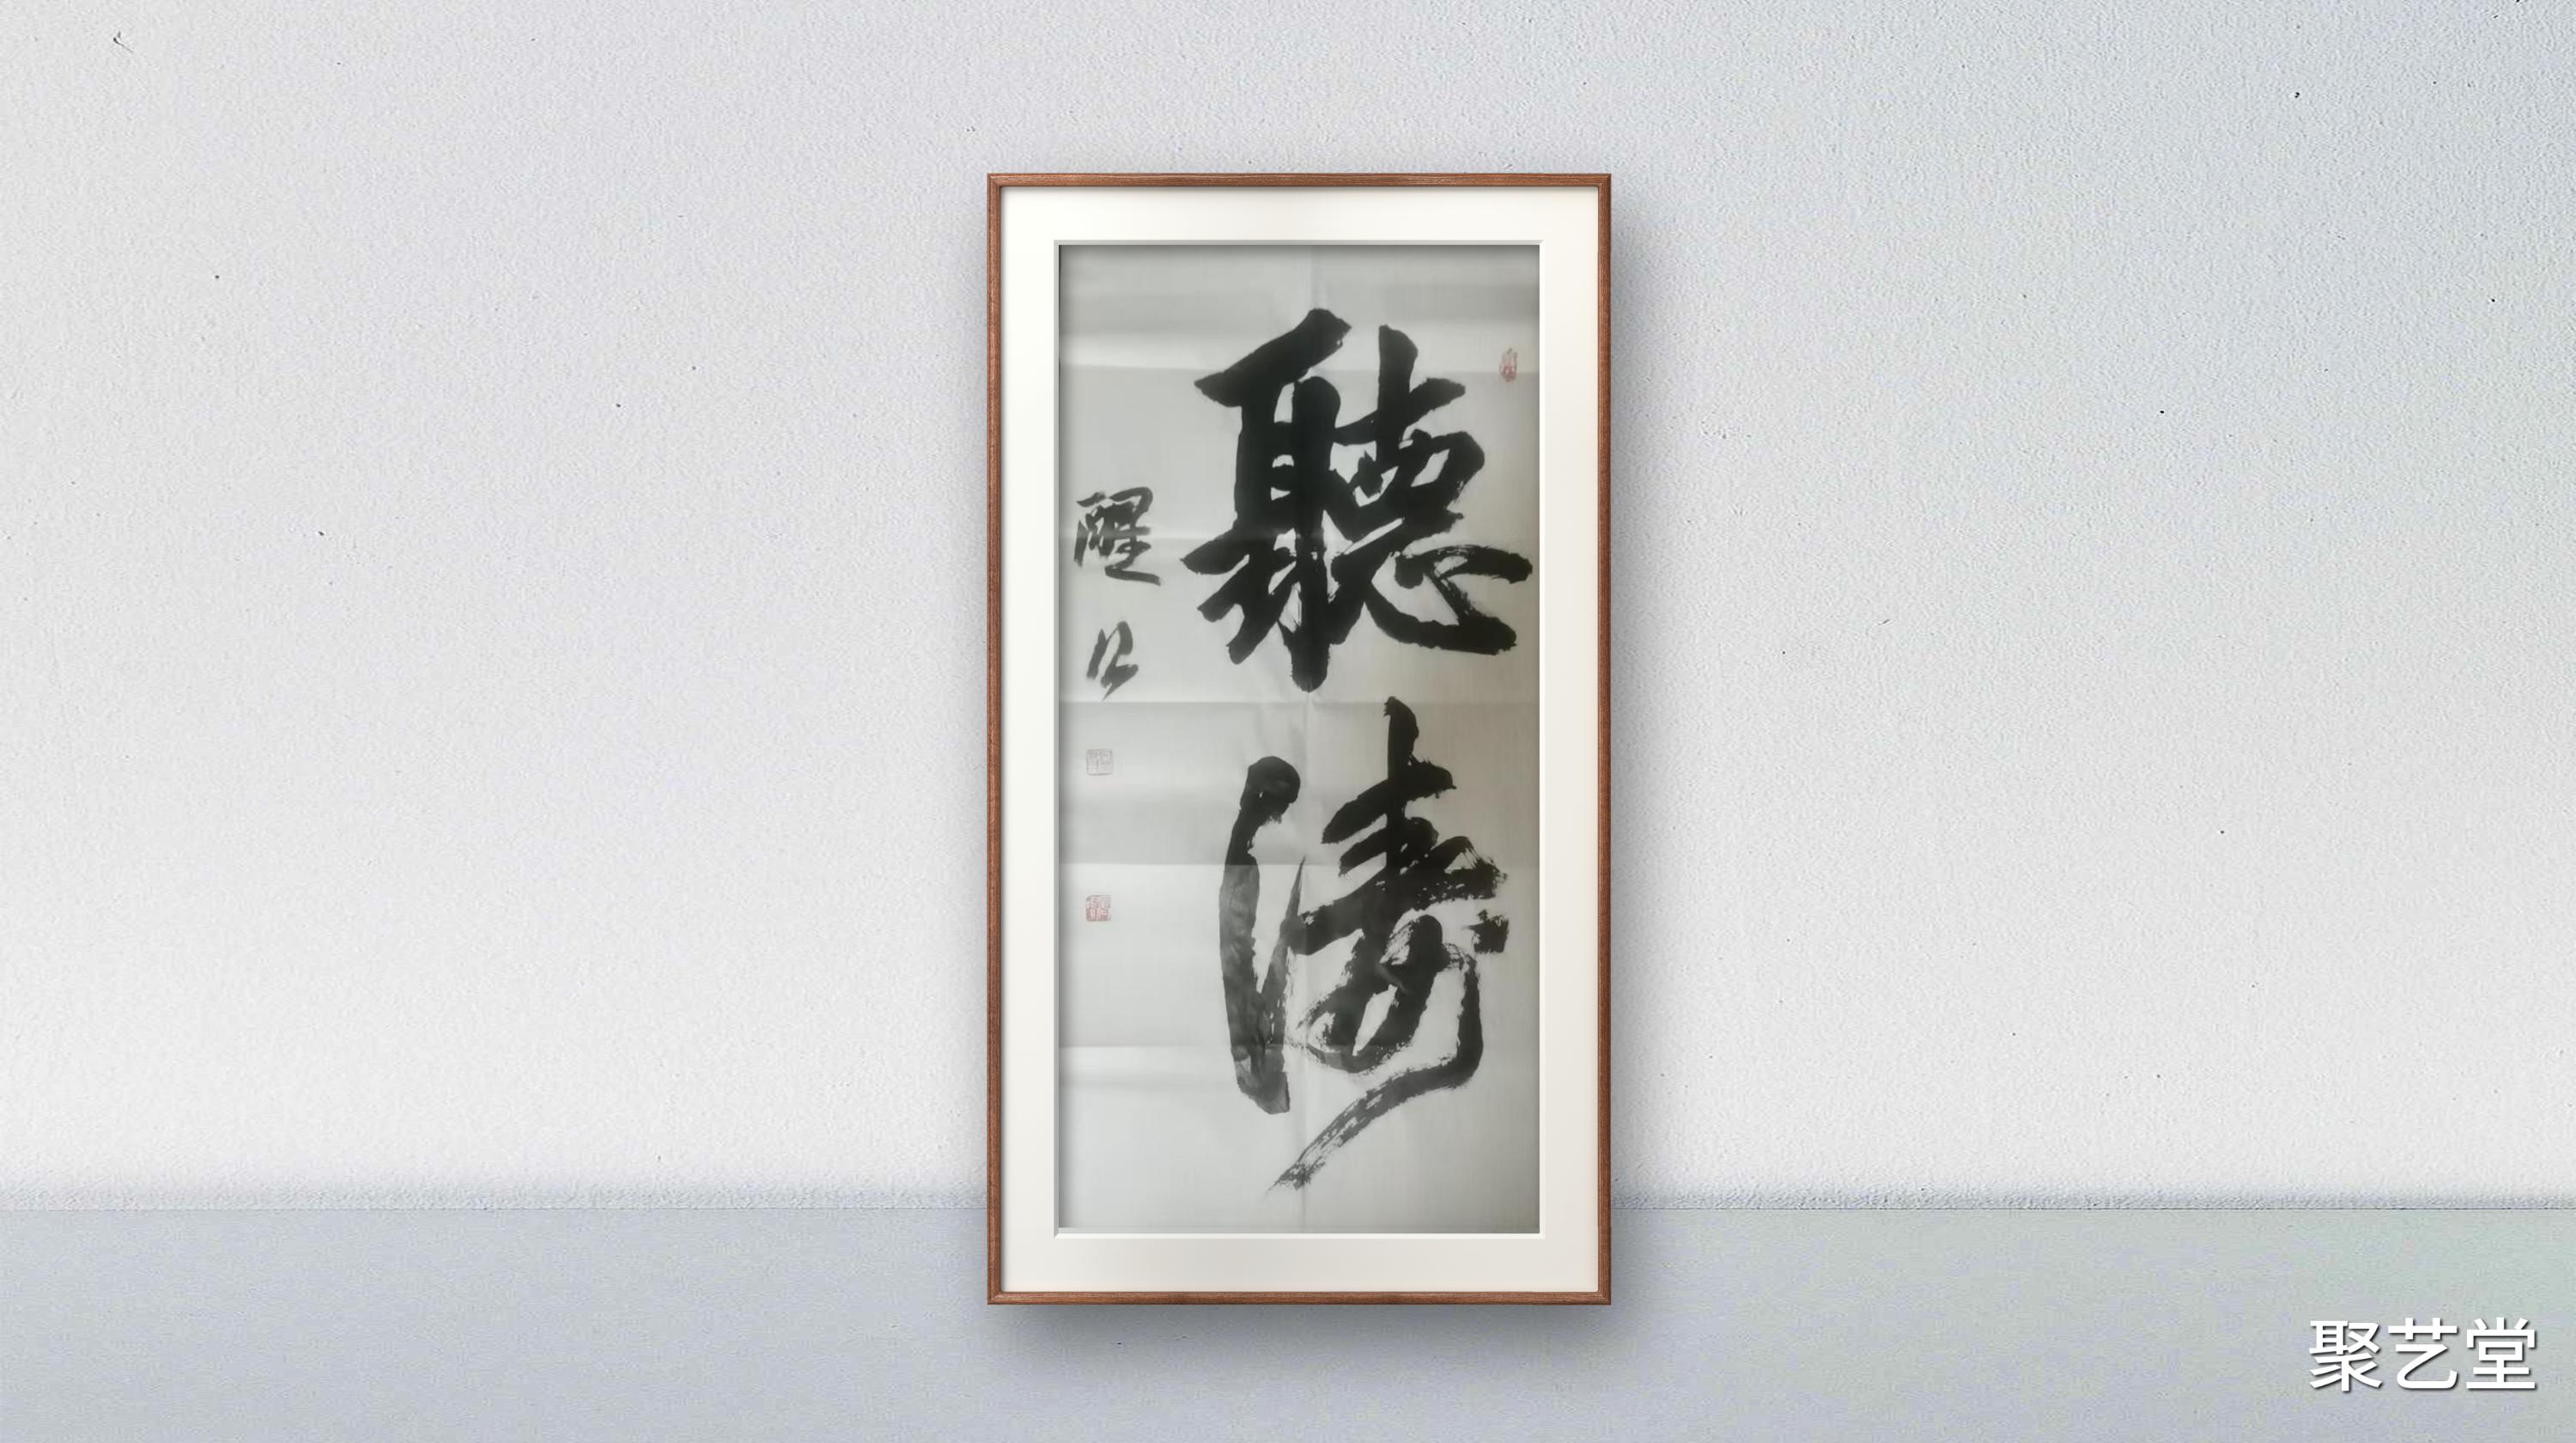 聽濤
醒公
聚艺堂